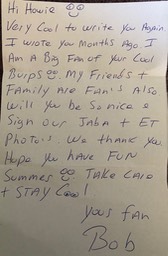 Hi Howie
Very Cool to write you Again
I wrote you Months Ago. I
Am A Big Fan of your Cool
Burps. My Friends +
Family Are Fans Also
Will you be So nice &
Sign our Jaba + ET
Photos. We thank you
Hope you have FUN
Summer TAKE CAre
+ STAY Cool!
your fan
Bob